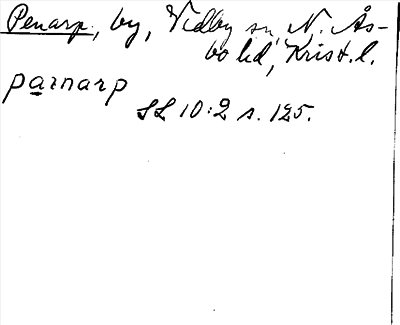 Penarp, by, Vidby sn, N. Ås-
bo hd, Krist. l.
parnarp
SL 10:2 s. 125.